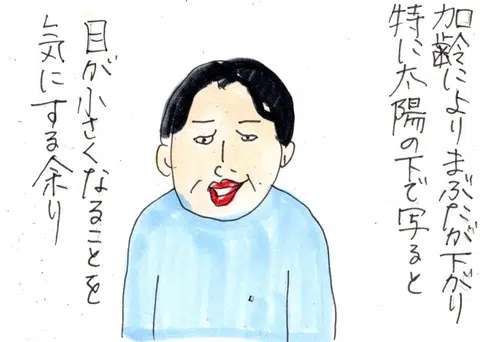 加齢によりまぶたが下がり
特に太陽の下で写ると
目が小さくなることを
気にする余り